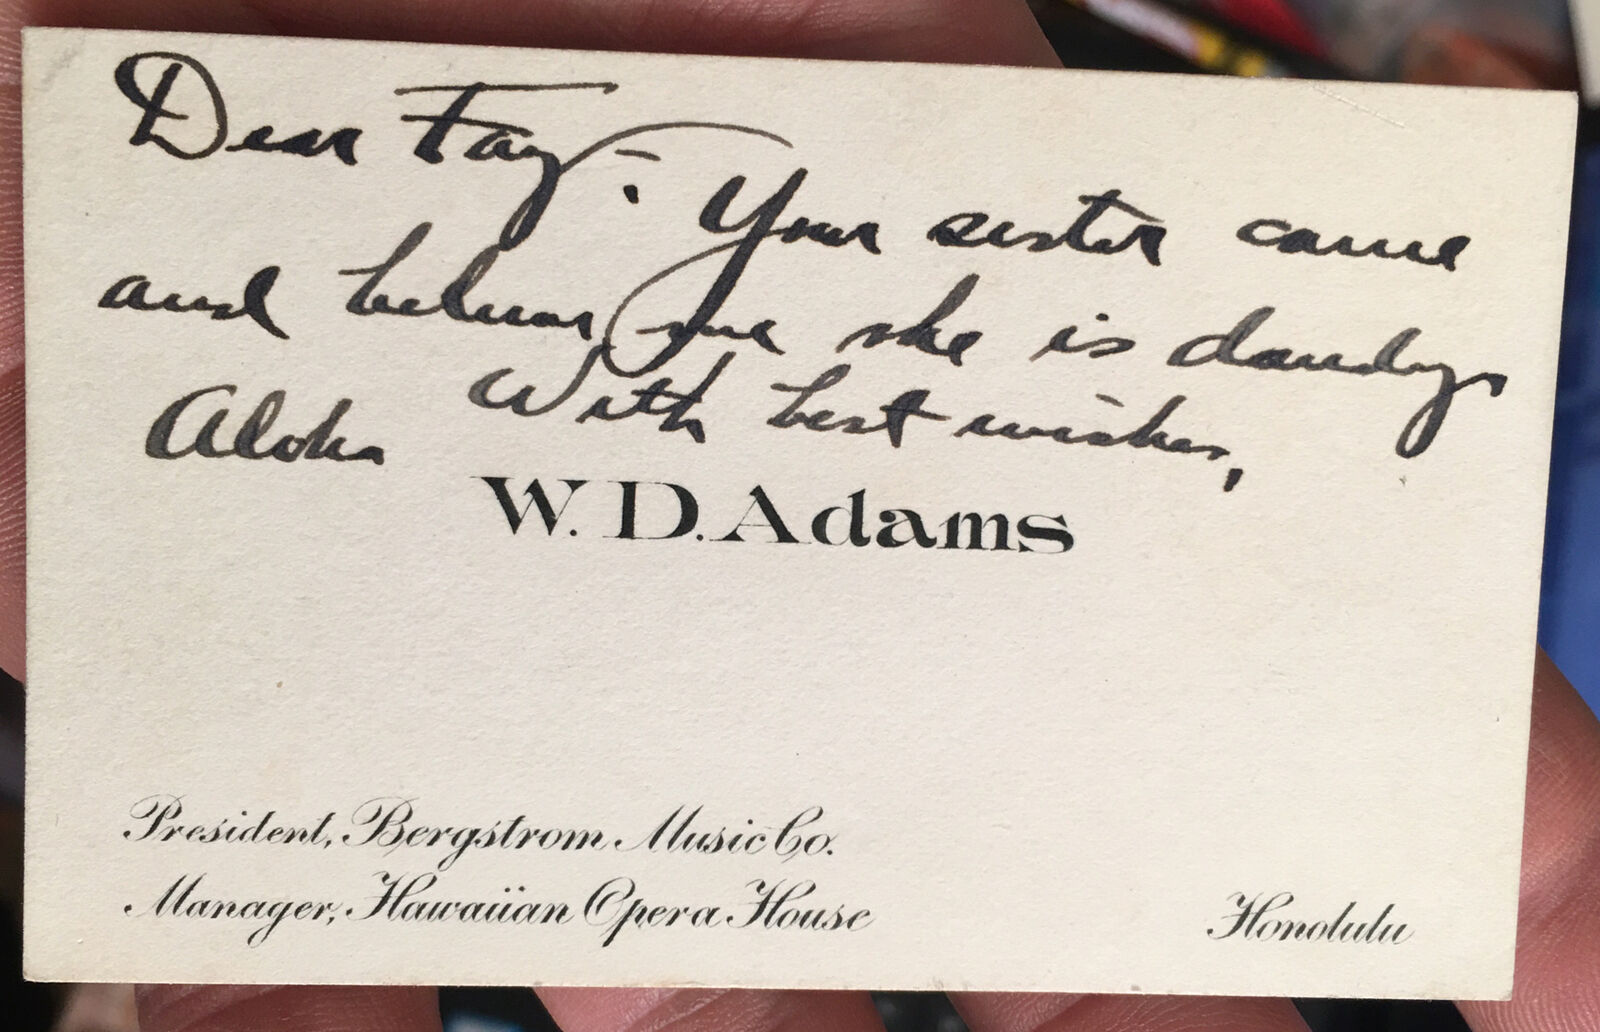 Dear Fay:- Your sister came
and believe me she is dandy.
Aloha With best wishes,
W. D. Adams
President, Bergstrom Music Co.
Manager, Hawaiian Opera House
Honolulu